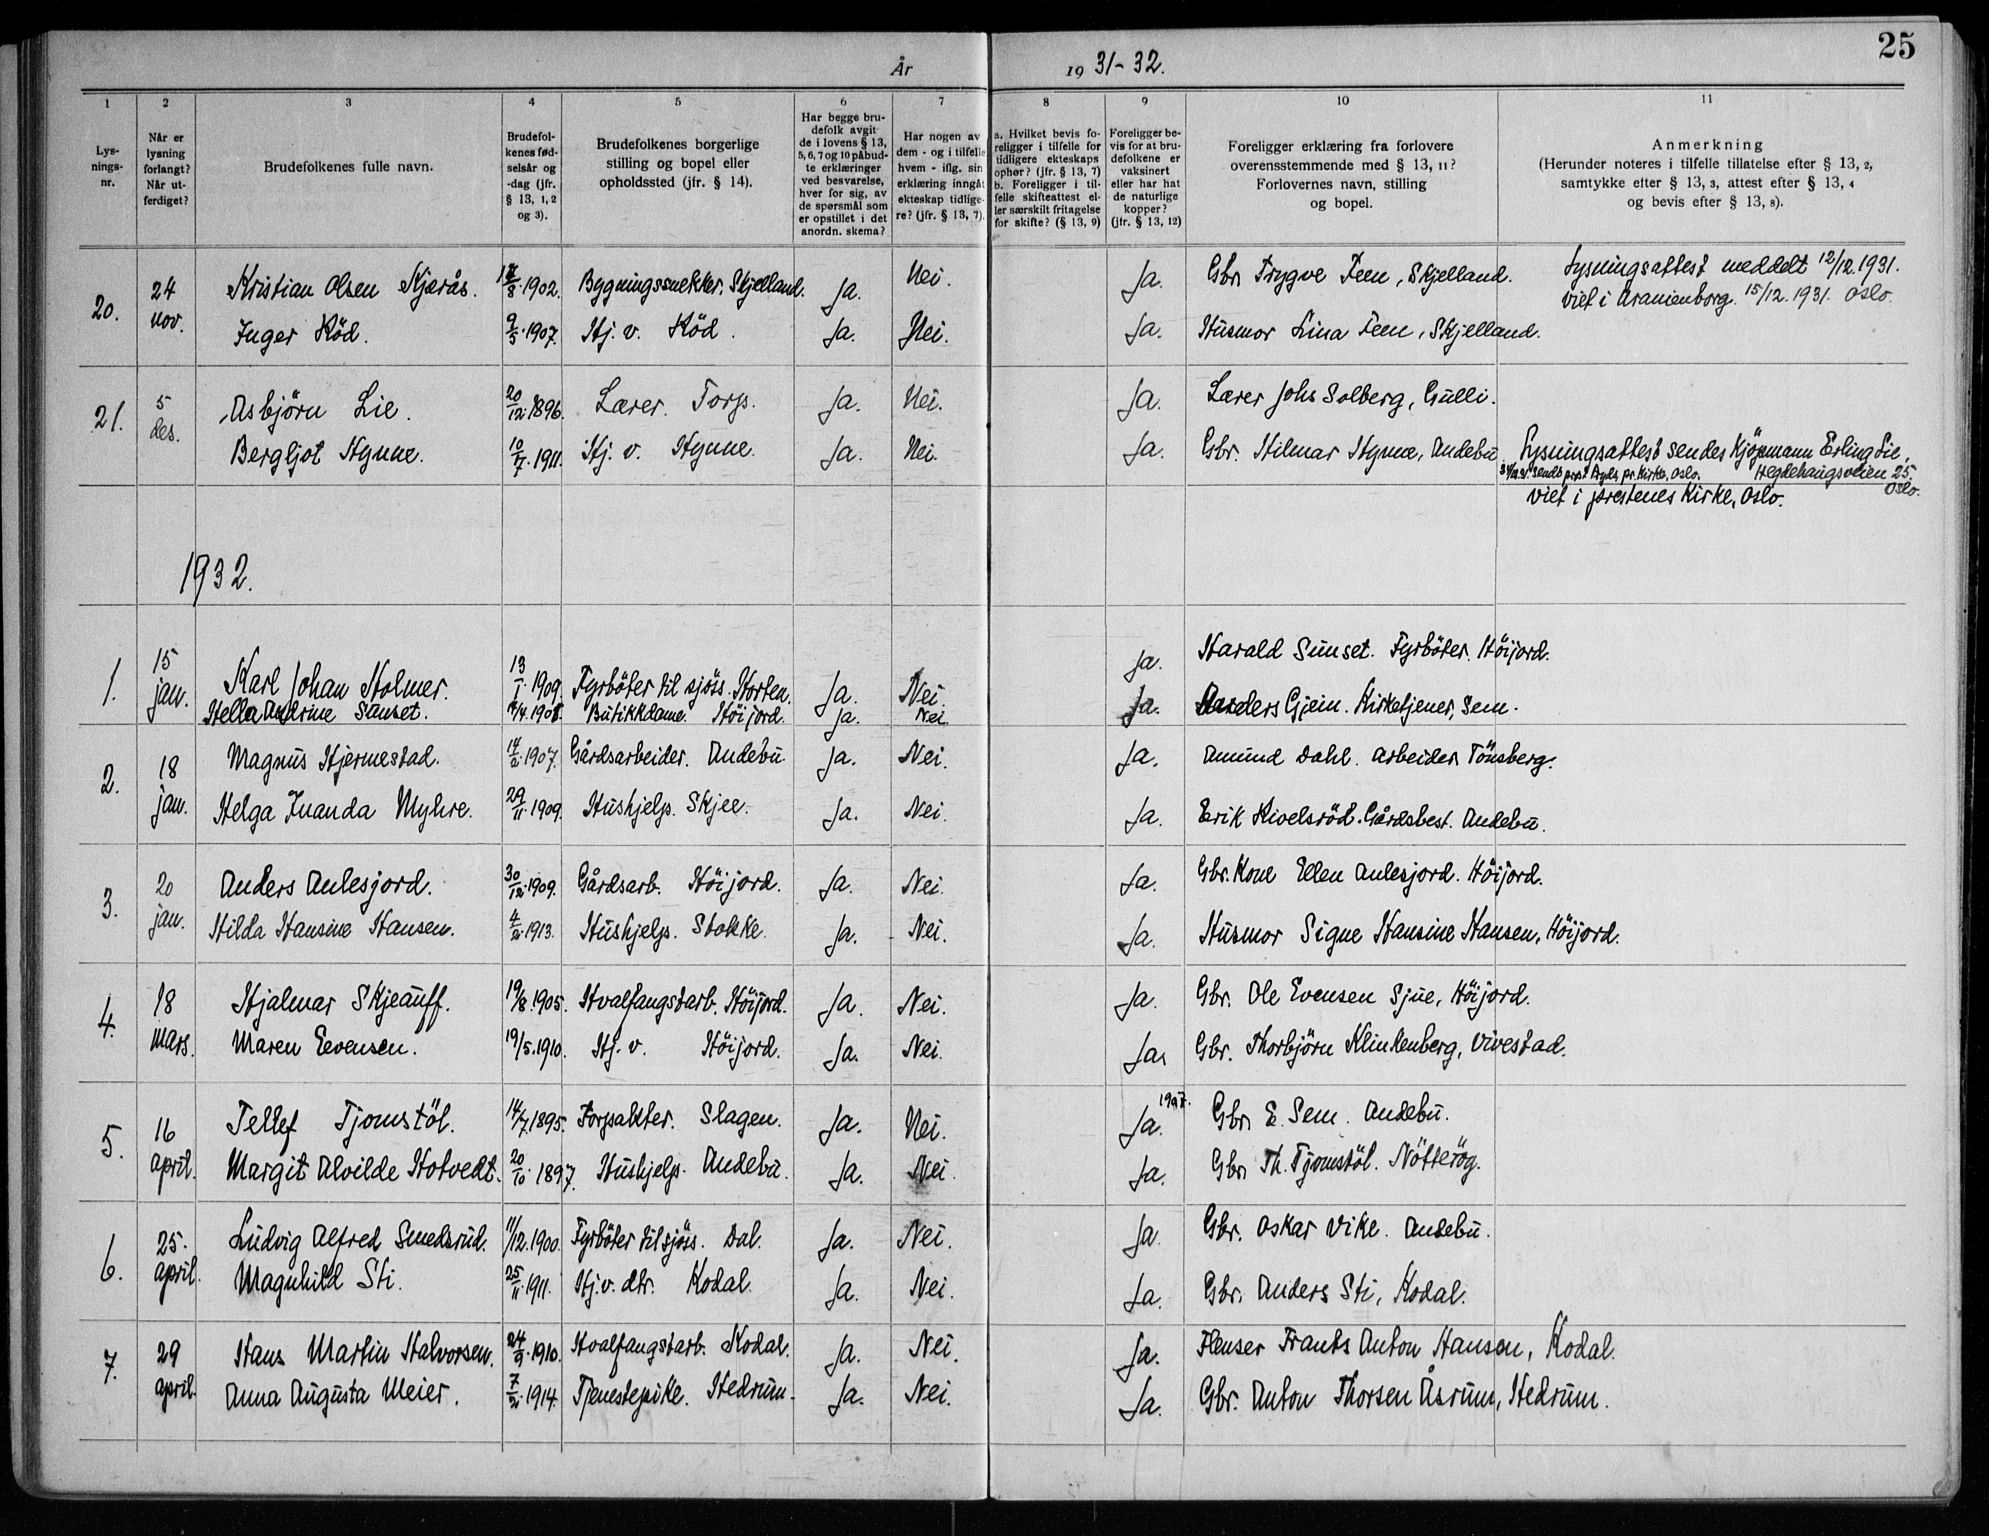 25
År 19 31-32.
1 2 3 4 5 6 7 8 9 10 11
Lys-
nings-
nr.
Når er
lysning
forlangt?
Når ut-
ferdiget?
Brudefolkenes fulle navn.
Brudefol-
kenes fød-
selsår og
-dag (jfr.
§ 13, 1, 2
og 3).
Brudefolkenes borgerlige
stilling og bopel eller
opholdssted (jfr. § 14).
Har begge bru-
defolk avgit
de i lovens § 13,
5, 6, 7 og 10 påbud-
te erklæringer
ved besvarelse,
hver for sig, av
de spørsmål som
er opstillet i det
anordn. skema?
Har nogen av
dem - og i tilfelle
hvem - iflg. sin
erklæring inngåt
ekteskap tidlige-
re? (jfr. § 13, 7).
a. Hvilket bevis fo-
religger i tilfelle for
tidligere ekteskaps
ophør? (jfr. § 13, 7)
b. Foreligger i til-
felle skifteattest el-
ler særskilt fritagelse
for skifte? (§ 13, 9)
Foreligger be-
vis for at bru-
defolkene er
vaksinert
eller har hat
de naturlige
kopper?
(jfr. § 13, 12)
Foreligger erklæring fra forlovere
overensstemmende med § 13, 11?
Forlovernes navn, stilling
og bopel.
Anmerkning
(Herunder noteres i tilfelle tillatelse efter § 13, 2,
samtykke efter § 13, 3, attest efter § 13, 4
og bevis efter § 13, 8).
20. 24 nov. Kristian Olsen Skjerås. 12/8.1902. Bygningssnekker. Skjelland. Ja. Nei. Ja. Gbr. Trygve Feen, Skjelland. Lysningsattest meddelt 12/12.1931.
viet i Uranienborg. 15/12.1931. Oslo.
Inger Röd. 9/5.1907. Hj. v. Röd. Ja. Nei. Ja. Husmor Lina Feen, Skjelland.
21. 5 des. Asbjörn Lie. 20/12.1896. Lærer. Torp. Ja. Nei. Ja. Lærer Johs Solberg, Gulli.
Bergljot Hynne. 10/7.1911. Hj. v. Hynne. Ja. Nei. Ja. Gbr. Hilmar Hynne, Andebu. Lysningsattest sendes Kjöpmann Erling Lie,
Hegdehaugsveien 25.
Oslo.
viet i prestenes Kirke, Oslo.
1932.
1. 15 jan. Karl Johan Holmer. 13/1.1909. Fyrböter til sjöss. Horten. Ja. Nei. Ja. Harald Sunset. Fyrböter. Höijord.
Hella Andrine Sunset. 1908. Butikkdame. Höijord. Ja. Nei. Ja. Anders Gjein. Kirketjener, Sem.
2. 18 jan. Magnus Hjermestad. 14/2.1907. Gårdsarbeider. Andebu. Ja. Nei. Ja. Amund Dahl. Arbeider. Tönsberg.
Helga Inanda Myhre. 29/11.1909. Hushjelp. Skjee. Ja. Nei. Ja. Erik Kivelsröd. Gårdsbest. Andebu.
3. 20 jan. Anders Aulesjord. 30/12.1909. Gårdsarb. Höijord. Ja. Nei. Ja. Gbr. Kone Ellen Aulesjord. Höijord.
Hilda Hansine Hansen. 4/2.1913. Hushjelp. Stokke. Ja. Nei. Ja. Husmor Signe Hansine Hansen, Höijord.
4. 18 mars. Hjalmar Skjeauff. 19/8.1905. Hvalfangstarb. Höijord. Ja. Nei. Ja. Gbr. Ole Evensen Sjue, Höijord.
Maren Eevensen. 19/5.1910. Hj. v. Höijord. Ja. Nei. Ja. Gbr. Thorbjörn Klinkenberg, Vivestad.
5. 16 april. Tellef Tjomstöl. 14/7.1895. Forpakter. Slagen. Ja. Nei. Ja. Gbr. E. Sem. Andebu.
Margit Alvilde Hotvedt. 20/10.1897. Hushjelp. Andebu. Ja. Nei. Ja. Gbr. Th. Tjomstöl. Nötteröy.
6. 25. april. Ludvig Alfred Smedsrud. 11/12.1900. Fyrböter til sjöss. Dal. Ja. Nei. Ja. Gbr. Oskar Vike. Andebu.
Magnhild Sti. 25/11.1911. Hj. v. dtr. Kodal. Ja. Nei. Ja. Gbr. Anders Sti, Kodal.
7. 29 april. Hans Martin Halvorsen. 24/9.1910. Hvalfangstarb. Kodal. Ja. Nei. Ja. Flenser Frants Anton Hansen, Kodal.
Anna Augusta Meier. 7/2.1914. Tjenestepike. Hedrum. Ja. Nei. Ja. Gbr. Anton Thorsen Åsrum, Hedrum.